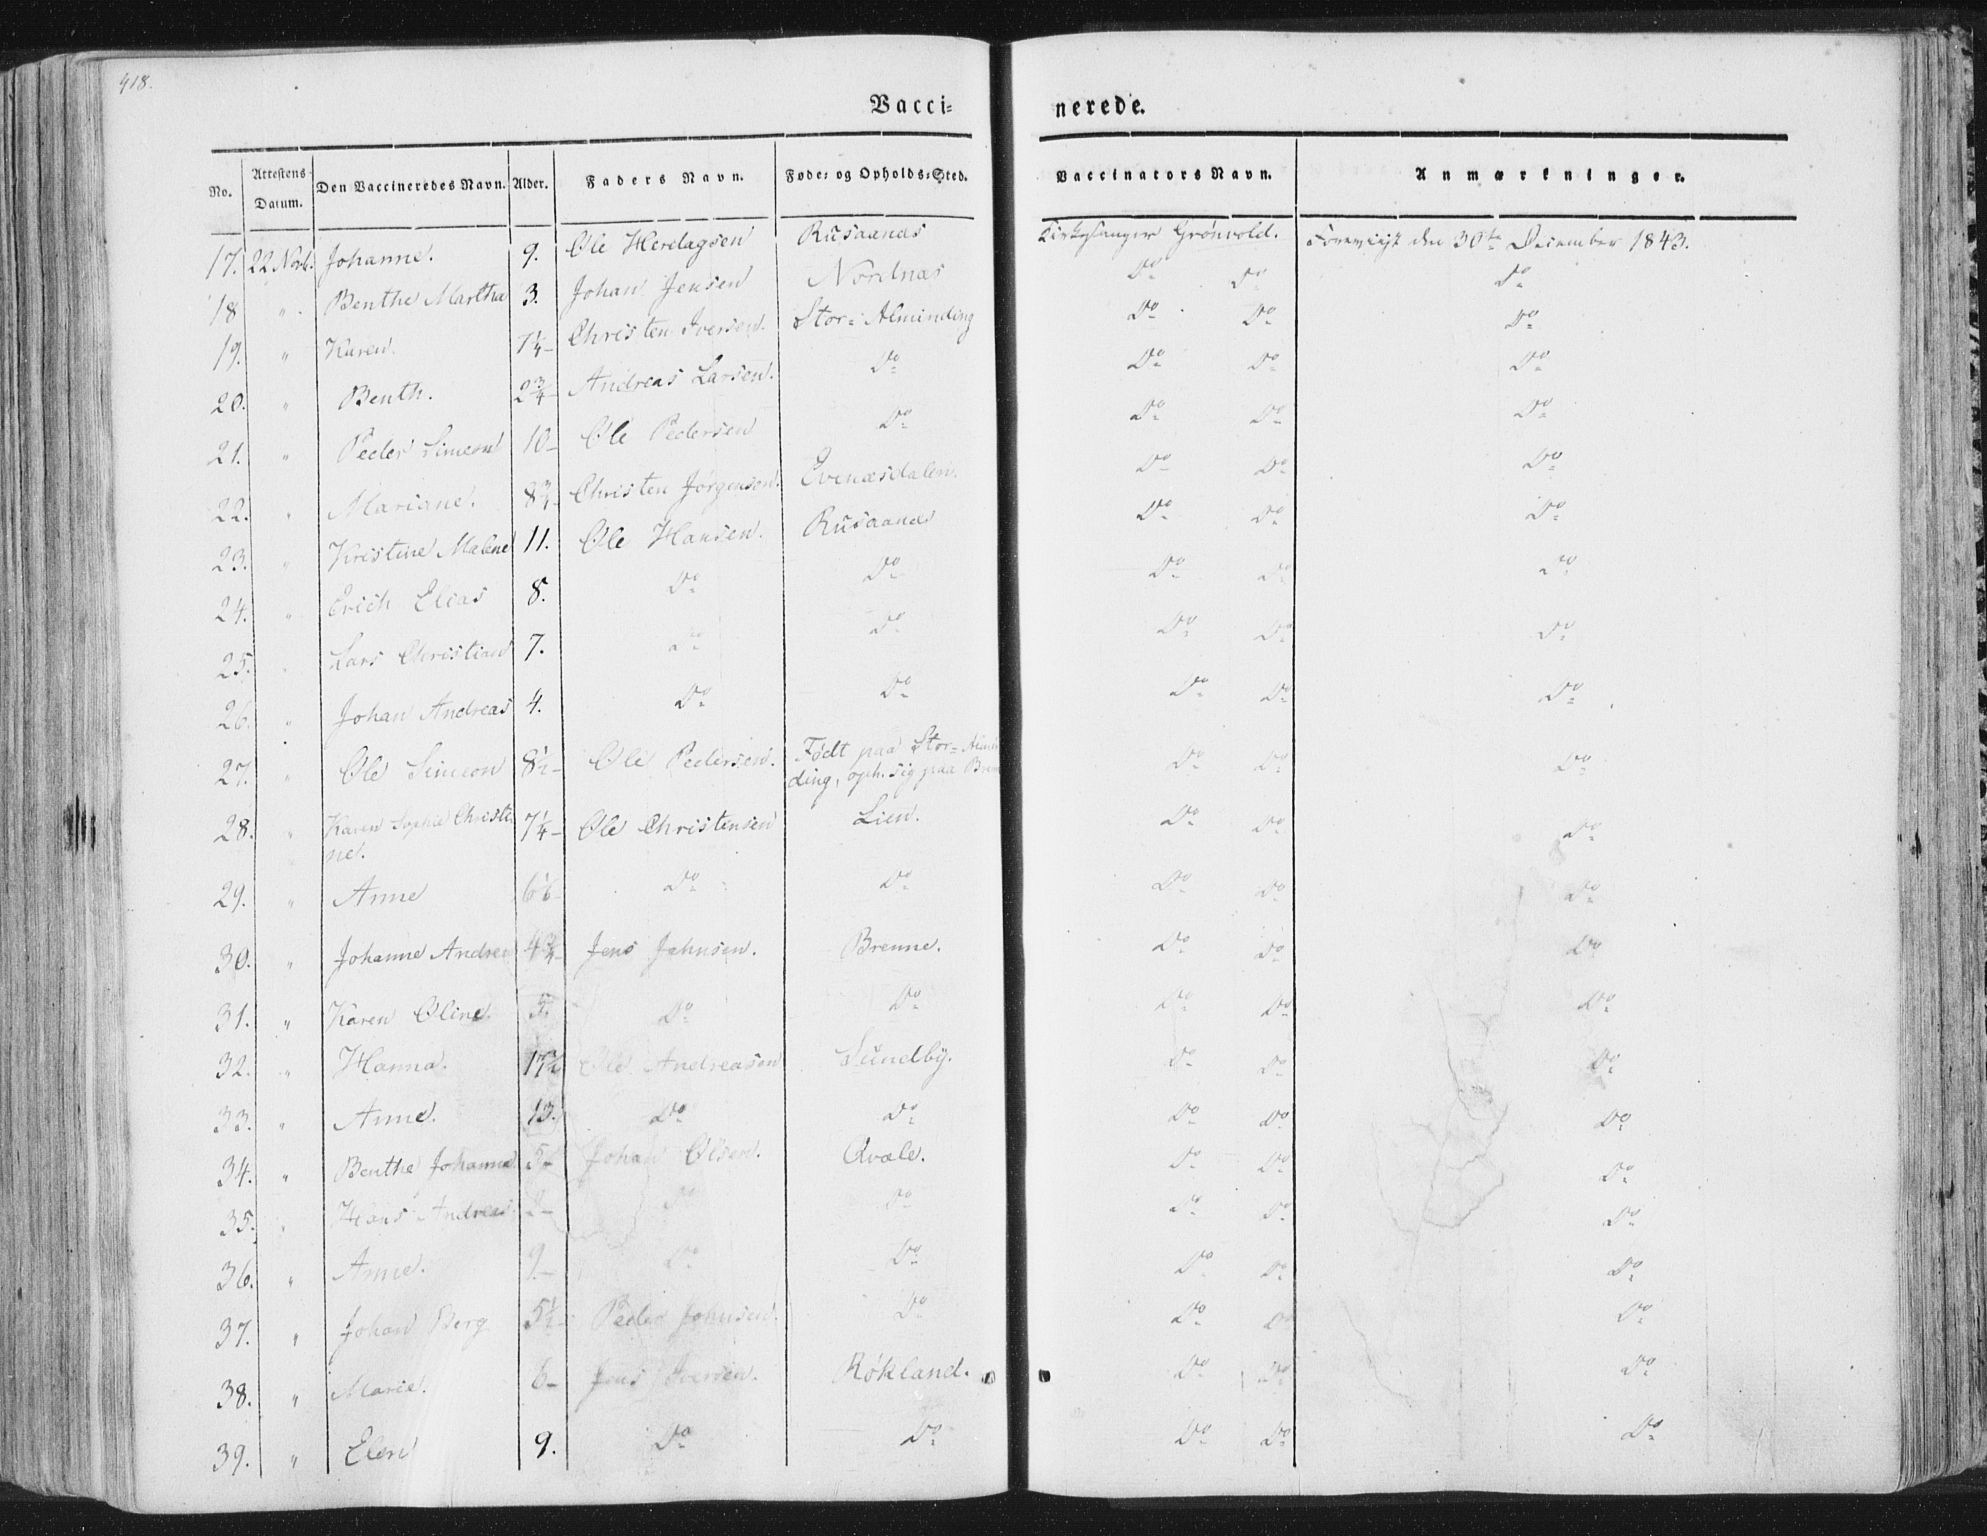 418.
Vacci= nerede.
No. Attestens Datum. Den Vaccineredes Navn. Alder. Faders Navn. Føde= og Opholds=Sted. Vaccinators Navn. Anmærkninger.
17. 22 Novb. Johanne. 9. Ole Herlagsen Rusaanes Kirkesanger Grönvold. Foreviist den 30te December 1843.
18 " Benthe Martha 3. Johan Jensen Nordnæs Do Do Do
19. " Karen. 7¼ Christen Iversen. Stor=Alminding Do Do Do
20. " Benth. 2¾ Andreas Larsen. Do Do Do Do
21. " Peder Simeon 10 Ole Pedersen Do Do Do Do
22. " Mariane. 8¾ Christen Jørgensen. Evenæsdalen. Do Do Do
23. " Kristine Malene 11. Ole Hansen. Rusaanes Do Do Do
24. " Erich Elias 8. Do Do Do Do Do
25. " Lars Christian 7. Do Do Do Do Do
26. " Johan Andreas 4. Do Do Do Do Do
27. " Ole Simeon 8½ Ole Pedersen. Født paa Stor=Almin
ding, oph. sig paa Brenne Do Do Do
28. " Karen Sophie Christi
ne. 7¼ Ole Christensen Lien. Do Do Do
29. " Anne Do Do Do Do Do
30. " Johanne Andrea 4¾ Jens Jahnsen. Brenne. Do Do Do
31. " Karen Oline. Do Do Do Do Do
32. " Hanna. Ole Andreasen Sundby. Do Do Do
33. " Anne. 13. Do Do Do Do Do
34. " Benthe Johanna Johan Olsen. Qvale. Do Do Do
35. " Hans Andreas 2 Do Do Do Do Do
36. " Anne. 9 Do Do Do Do Do
37. " Johan Berg 5½ Peder Johnsen. Do Do Do Do
38. " Marie. 6 Jens Iversen. Røkland. Do Do Do
39. " Elen 9. Do Do Do Do Do